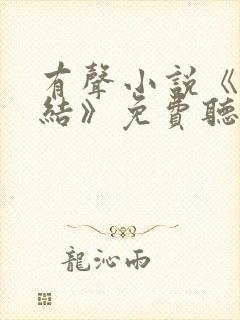 有聲小說《
結》免費聽
龍沁雨